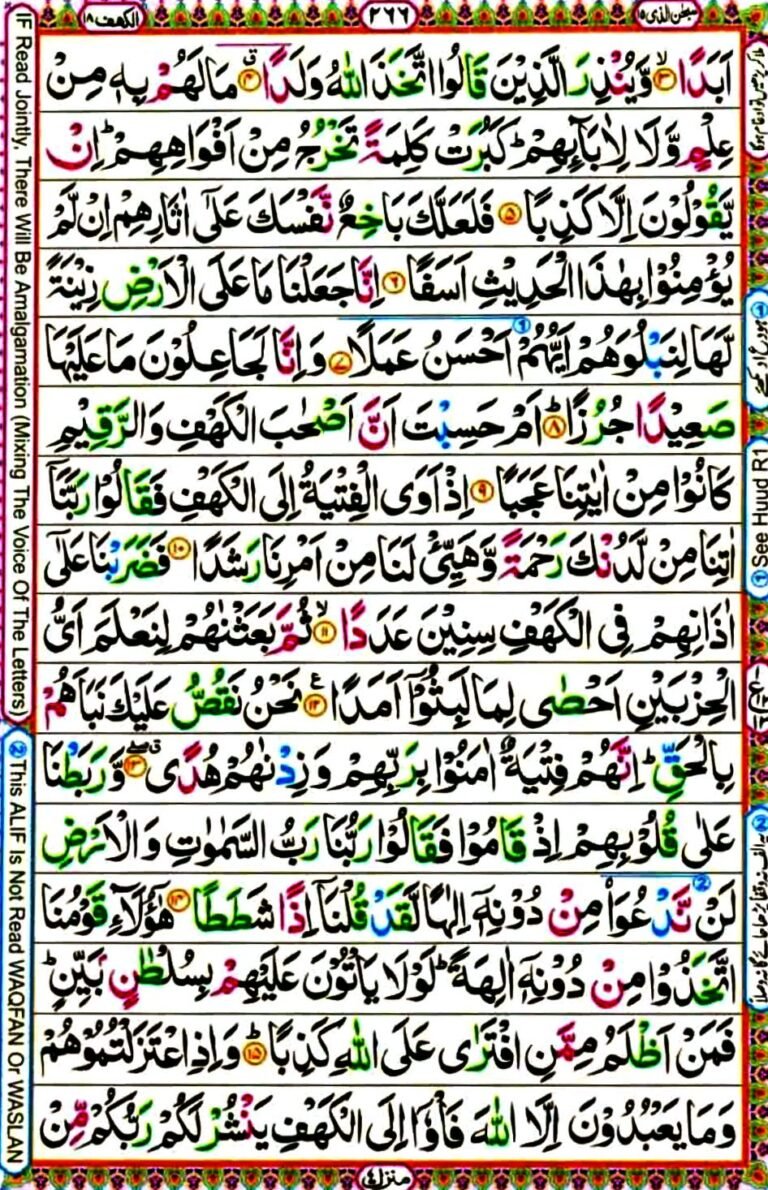 سبحن الذی ۱۵
۲۶۶
الکهف ۱۸
اَبَدًا ۙ﴿۳﴾ وَّیُنْذِرَ الَّذِیْنَ قَالُوا اتَّخَذَ اللّٰهُ وَلَدًا ۗ﴿۴﴾ مَا لَهُمْ بِهٖ مِنْ
عِلْمٍ وَّلَا لِاٰبَآئِهِمْ ؕ كَبُرَتْ كَلِمَةً تَخْرُجُ مِنْ اَفْوَاهِهِمْ ؕ اِنْ
یَّقُوْلُوْنَ اِلَّا كَذِبًا ﴿۵﴾ فَلَعَلَّكَ بَاخِعٌ نَّفْسَكَ عَلٰۤی اٰثَارِهِمْ اِنْ لَّمْ
یُؤْمِنُوْا بِهٰذَا الْحَدِیْثِ اَسَفًا ﴿۶﴾ اِنَّا جَعَلْنَا مَا عَلَی الْاَرْضِ زِیْنَةً
لَّهَا لِنَبْلُوَهُمْ اَیُّهُمْ اَحْسَنُ عَمَلًا ﴿۷﴾ وَ اِنَّا لَجَاعِلُوْنَ مَا عَلَیْهَا
صَعِیْدًا جُرُزًا ؕ﴿۸﴾ اَمْ حَسِبْتَ اَنَّ اَصْحٰبَ الْكَهْفِ وَ الرَّقِیْمِ
كَانُوْا مِنْ اٰیٰتِنَا عَجَبًا ﴿۹﴾ اِذْ اَوَی الْفِتْیَةُ اِلَی الْكَهْفِ فَقَالُوْا رَبَّنَاۤ
اٰتِنَا مِنْ لَّدُنْكَ رَحْمَةً وَّهَیِّئْ لَنَا مِنْ اَمْرِنَا رَشَدًا ﴿۱۰﴾ فَضَرَبْنَا عَلٰۤی
اٰذَانِهِمْ فِی الْكَهْفِ سِنِیْنَ عَدَدًا ۙ﴿۱۱﴾ ثُمَّ بَعَثْنٰهُمْ لِنَعْلَمَ اَیُّ
الْحِزْبَیْنِ اَحْصٰی لِمَا لَبِثُوْۤا اَمَدًا ﴿۱۲﴾ نَحْنُ نَقُصُّ عَلَیْكَ نَبَاَهُمْ
بِالْحَقِّ ؕ اِنَّهُمْ فِتْیَةٌ اٰمَنُوْا بِرَبِّهِمْ وَ زِدْنٰهُمْ هُدًی ﴿۱۳﴾ وَّ رَبَطْنَا
عَلٰی قُلُوْبِهِمْ اِذْ قَامُوْا فَقَالُوْا رَبُّنَا رَبُّ السَّمٰوٰتِ وَ الْاَرْضِ
لَنْ نَّدْعُوَا۟ مِنْ دُوْنِهٖۤ اِلٰهًا لَّقَدْ قُلْنَاۤ اِذًا شَطَطًا ﴿۱۴﴾ هٰۤؤُلَآءِ قَوْمُنَا
اتَّخَذُوْا مِنْ دُوْنِهٖۤ اٰلِهَةً ؕ لَوْ لَا یَاْتُوْنَ عَلَیْهِمْ بِسُلْطٰنٍۭ بَیِّنٍ ؕ
فَمَنْ اَظْلَمُ مِمَّنِ افْتَرٰی عَلَی اللّٰهِ كَذِبًا ؕ﴿۱۵﴾ وَ اِذِ اعْتَزَلْتُمُوْهُمْ
وَ مَا یَعْبُدُوْنَ اِلَّا اللّٰهَ فَاْوٗۤا اِلَی الْكَهْفِ یَنْشُرْ لَكُمْ رَبُّكُمْ مِّنْ
منزل ۴
IF Read Jointly, There Will Be Amalgamation (Mixing The Voice Of The Letters)
② This ALIF Is Not Read WAQFAN Or WASLAN
① See Huud R1